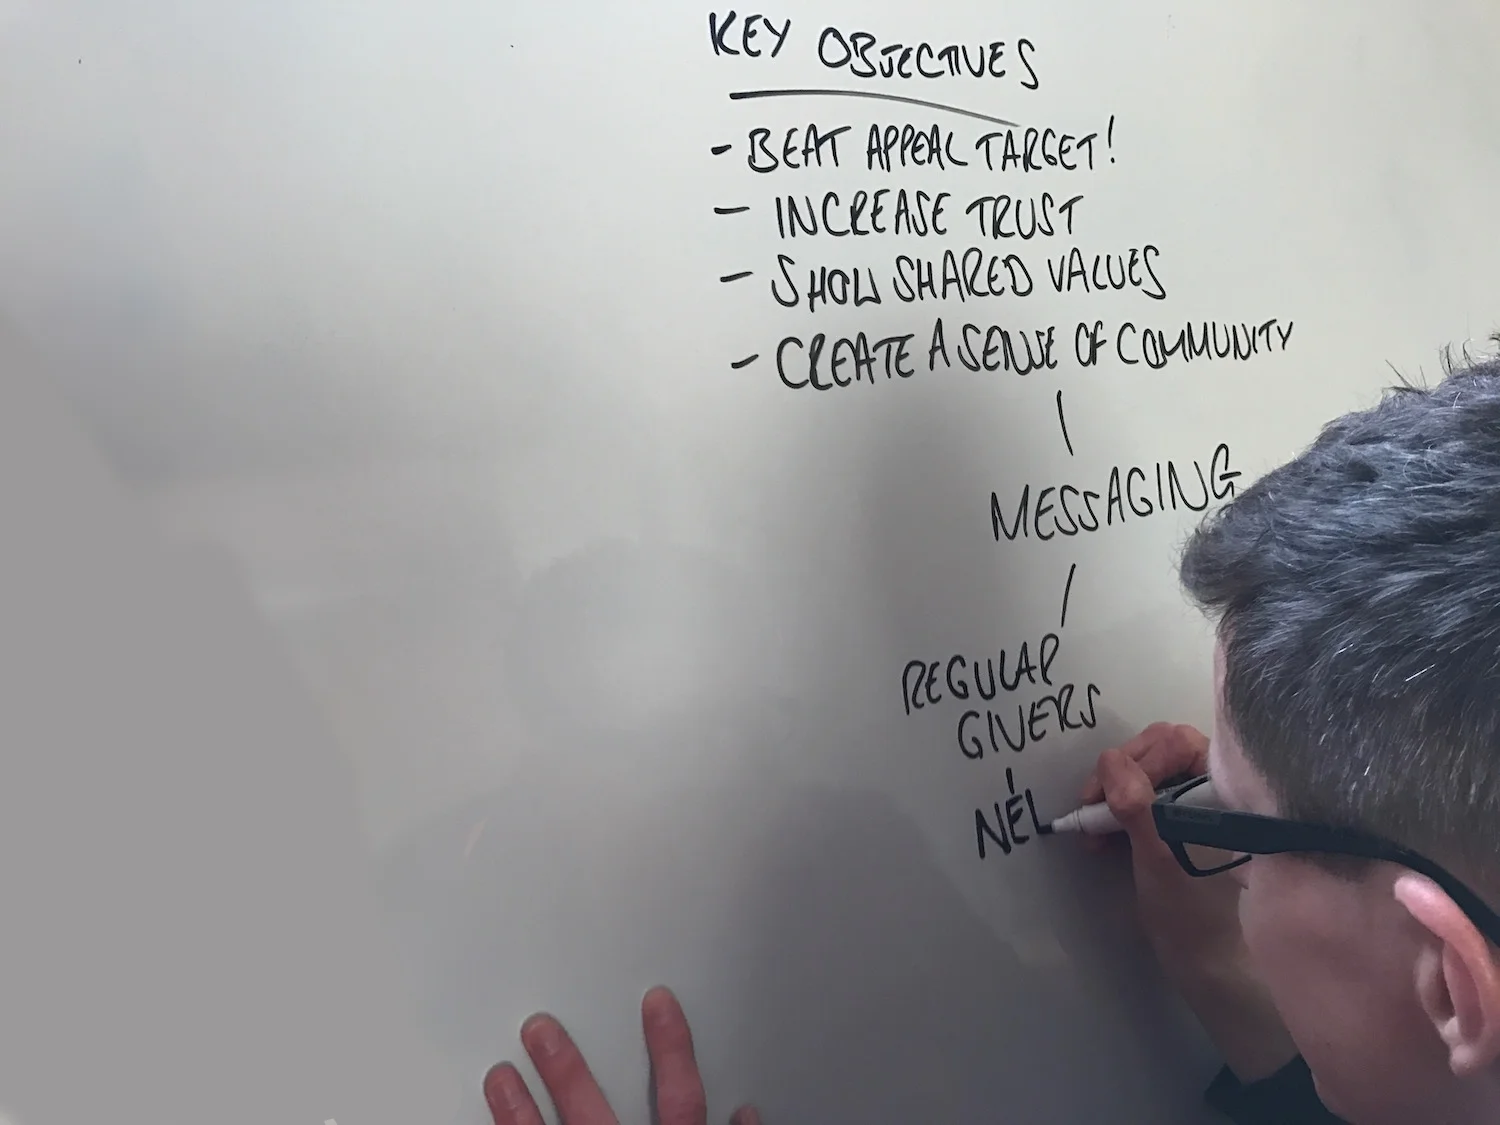 KEY OBJECTIVES
- BEAT APPEAL TARGET!
- INCREASE TRUST
- SHOW SHARED VALUES
- CREATE A SENSE OF COMMUNITY
MESSAGING
REGULAR
GIVERS
NEL